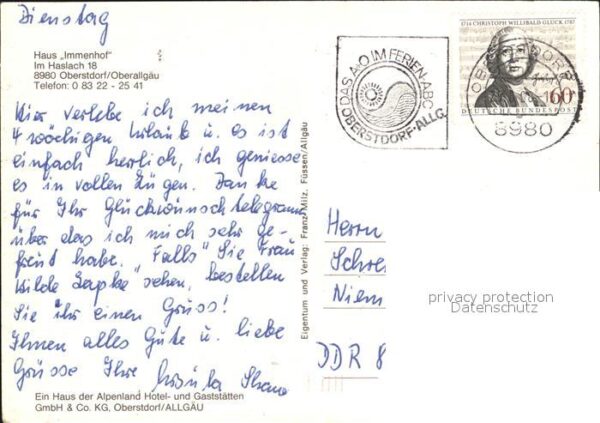 Dienstag
Haus „Immenhof"
Im Haslach 18
8980 Oberstdorf/Oberallgäu
Telefon: 0 83 22 - 25 41
Hier verlebe ich meinen
4 wöchigen Urlaub u. es ist
einfach herlich, ich geniesse
es in vollen Zügen. Danke
für Ihr Glückwunschtelegramm
über das ich mich sehr ge-
freut habe. Falls Sie "Frau
Wilde" sehen, bestellen
Sie ihr einen Gruss!
Ihnen alles Gute u. liebe
Grüsse Ihre Ursula
Ein Haus der Alpenland Hotel- und Gaststätten
GmbH & Co. KG, Oberstdorf/ALLGÄU
Eigentum und Verlag: Franz Milz, Füssen/Allgäu
DAS A-O IM FERIEN-ABC
OBERSTDORF-ALLG.
1714 CHRISTOPH WILLIBALD GLUCK 1787
60
DEUTSCHE BUNDESPOST
OBERSTDORF
8980
Herrn
Schre
Niem
DDR 8
privacy protection
Datenschutz